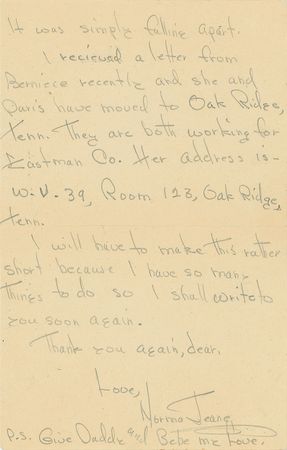 It was simply falling apart.
I recieved a letter from
Berniece recently and she and
Paris have moved to Oak Ridge,
Tenn. They are both working for
Eastman Co. Her address is -
W.V. 39, Room 123, Oak Ridge,
Tenn.
I will have to make this rather
short because I have so many
things to do so I shall write to
you soon again.
Thank you again, dear.
Love,
Norma Jeane
P.S. Give Daddy and Bebe my love.